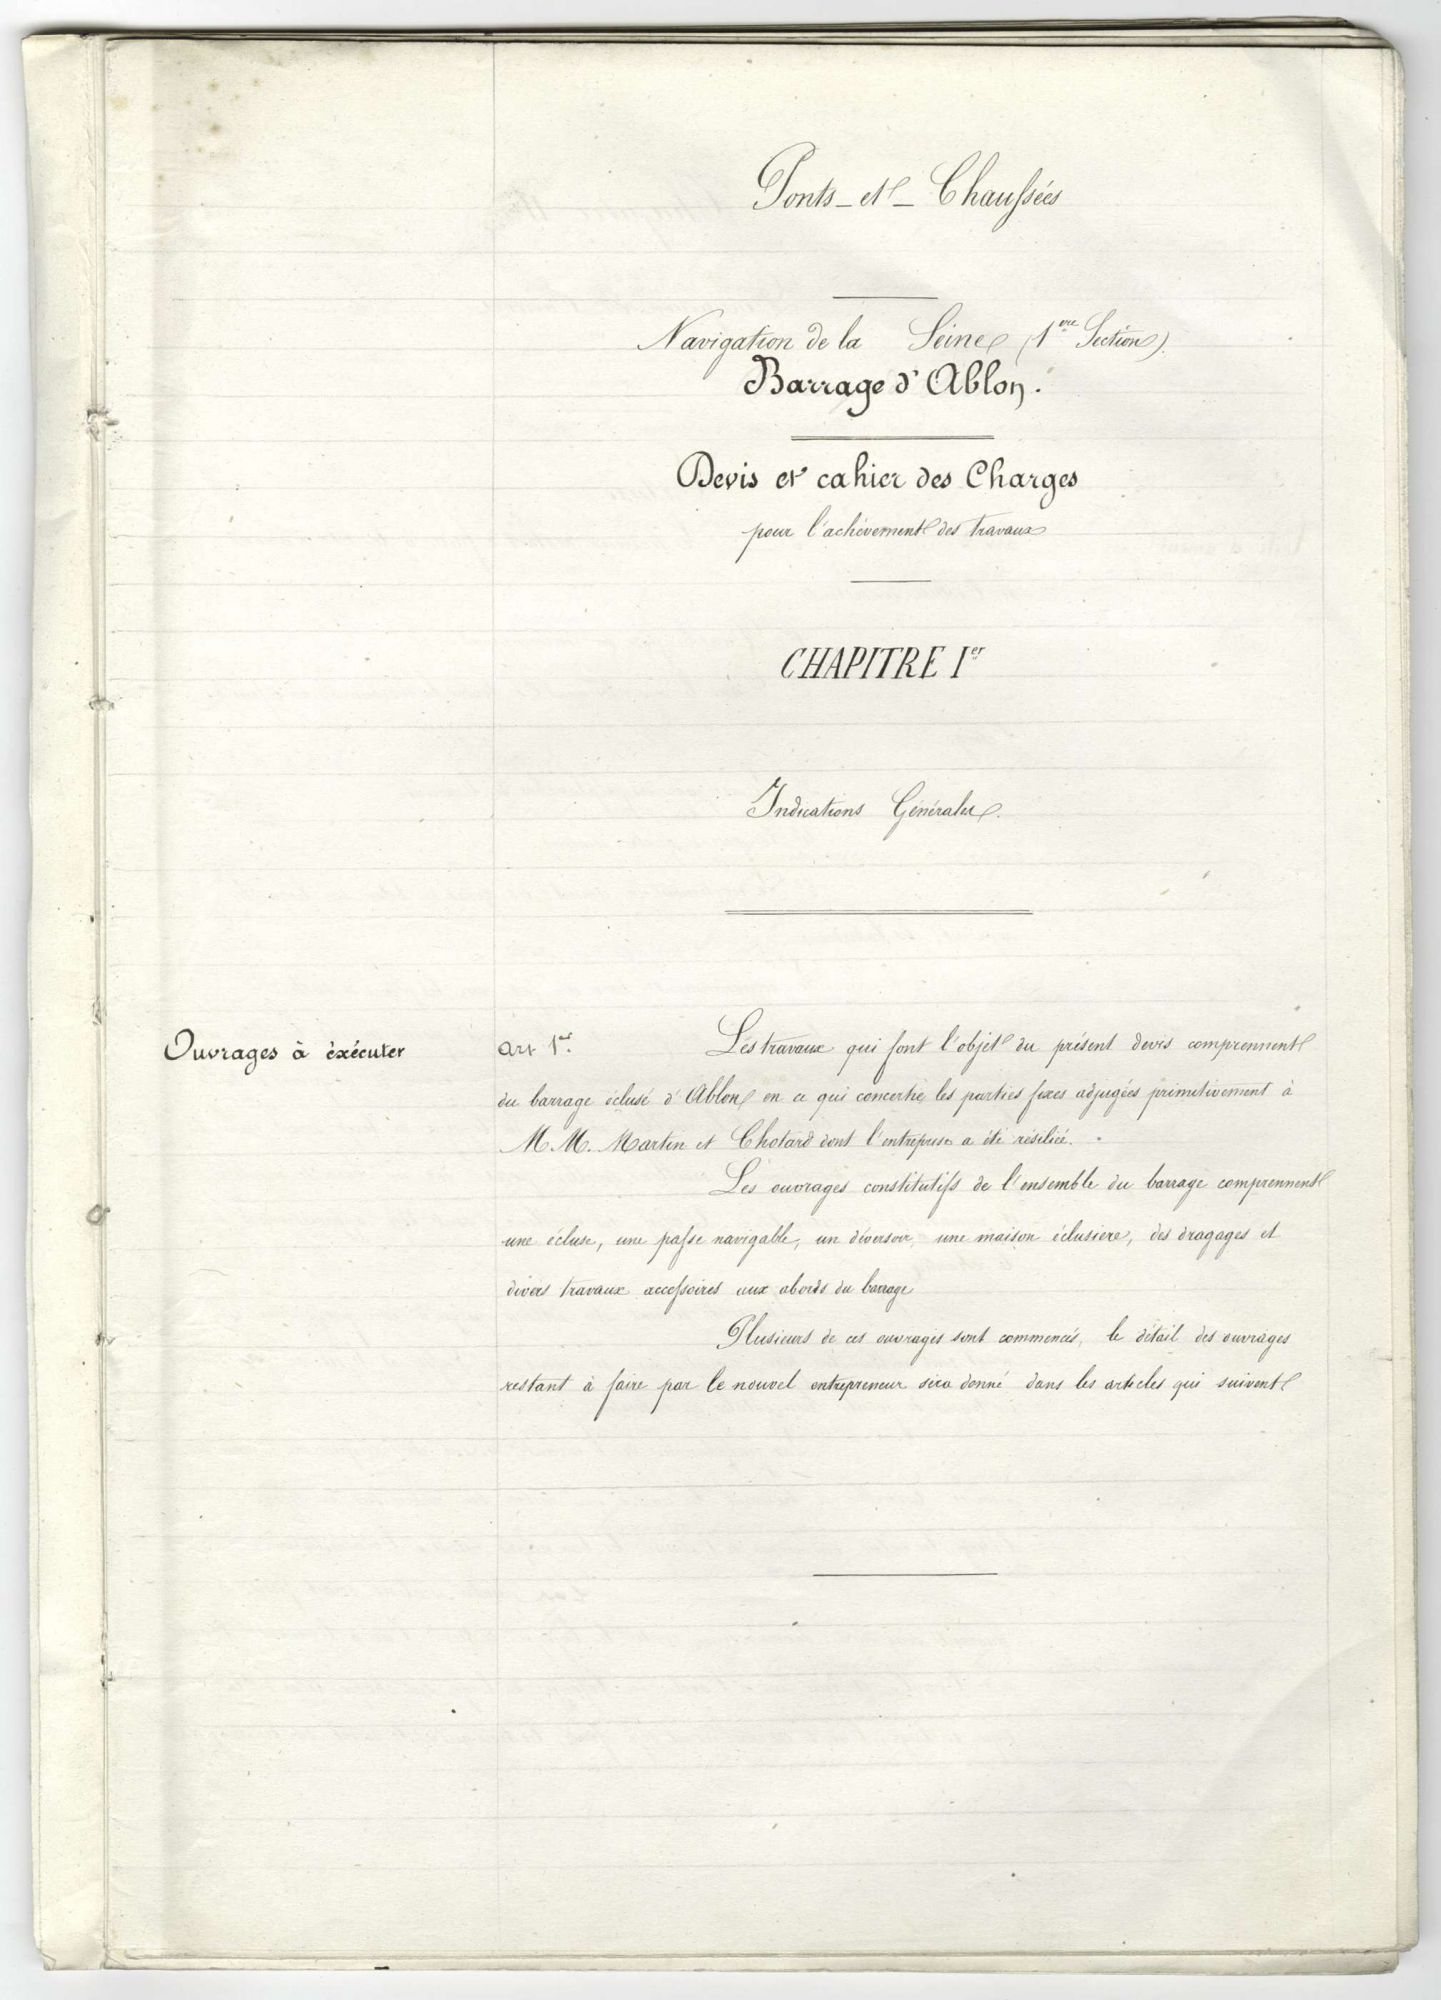 Ponts-et-Chaussées
Navigation de la Seine (1ere Section).
Barrage d'Ablon.
Devis et cahier des Charges
pour l'achèvement des travaux
CHAPITRE Ier
Indications Générales.
Ouvrages à éxécuter
art 1er. Les travaux qui font l'objet du présent devis comprennent
du barrage éclusé d'Ablon en ce qui concerne les parties fixes adjugées primitivement à
M.M. Martin et Chotard dont l'entreprise a été résiliée.
Les ouvrages constitutifs de l'ensemble du barrage comprennent
une écluse, une passe navigable, un déversoir, une maison éclusière, des dragages et
divers travaux accessoires aux abords du barrage
Plusieurs de ces ouvrages sont commencés, le détail des ouvrages
restant à faire par le nouvel entrepreneur sera donné dans les articles qui suivent